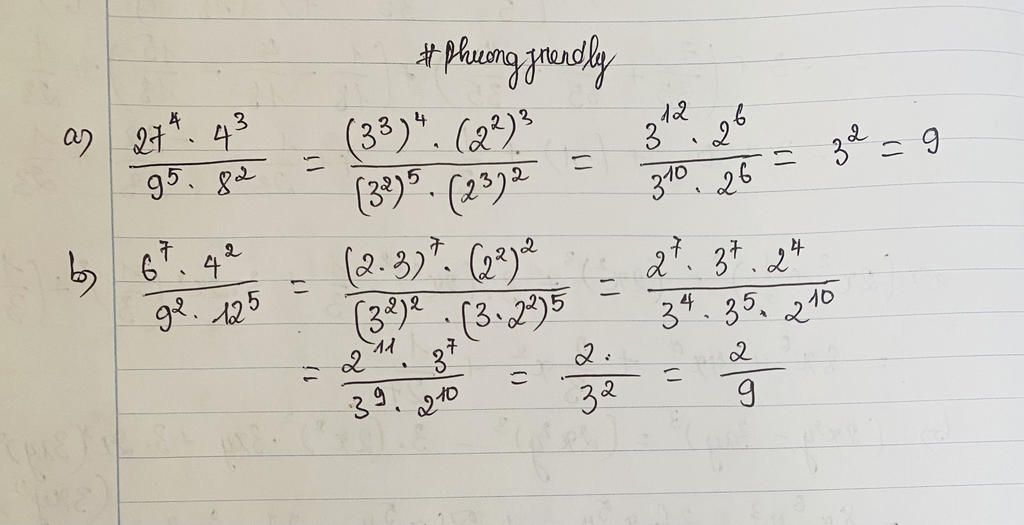 #Phuongfrendly
a) \frac{27^4 \cdot 4^3}{9^5 \cdot 8^2} = \frac{(3^3)^4 \cdot (2^2)^3}{(3^2)^5 \cdot (2^3)^2} = \frac{3^{12} \cdot 2^6}{3^{10} \cdot 2^6} = 3^2 = 9
b) \frac{6^7 \cdot 4^2}{9^2 \cdot 12^5} = \frac{(2 \cdot 3)^7 \cdot (2^2)^2}{(3^2)^2 \cdot (3 \cdot 2^2)^5} = \frac{2^7 \cdot 3^7 \cdot 2^4}{3^4 \cdot 3^5 \cdot 2^{10}}
= \frac{2^{11} \cdot 3^7}{3^9 \cdot 2^{10}} = \frac{2}{3^2} = \frac{2}{9}